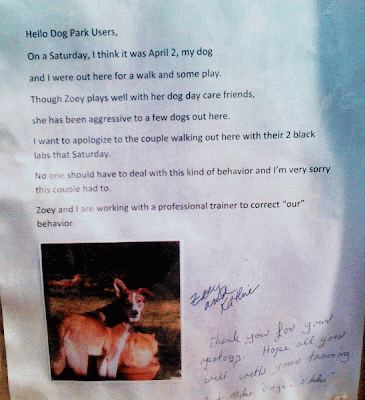 Hello Dog Park Users,
On a Saturday, I think it was April 2, my dog
and I were out here for a walk and some play.
Though Zoey plays well with her dog day care friends,
she has been aggressive to a few dogs out here.
I want to apologize to the couple walking out here with their 2 black
labs that Saturday.
No one should have to deal with this kind of behavior and I'm very sorry
this couple had to.
Zoey and I are working with a professional trainer to correct "our"
behavior.
Zoey
and
Thank you for your
apology. Hope all goes
well with your training